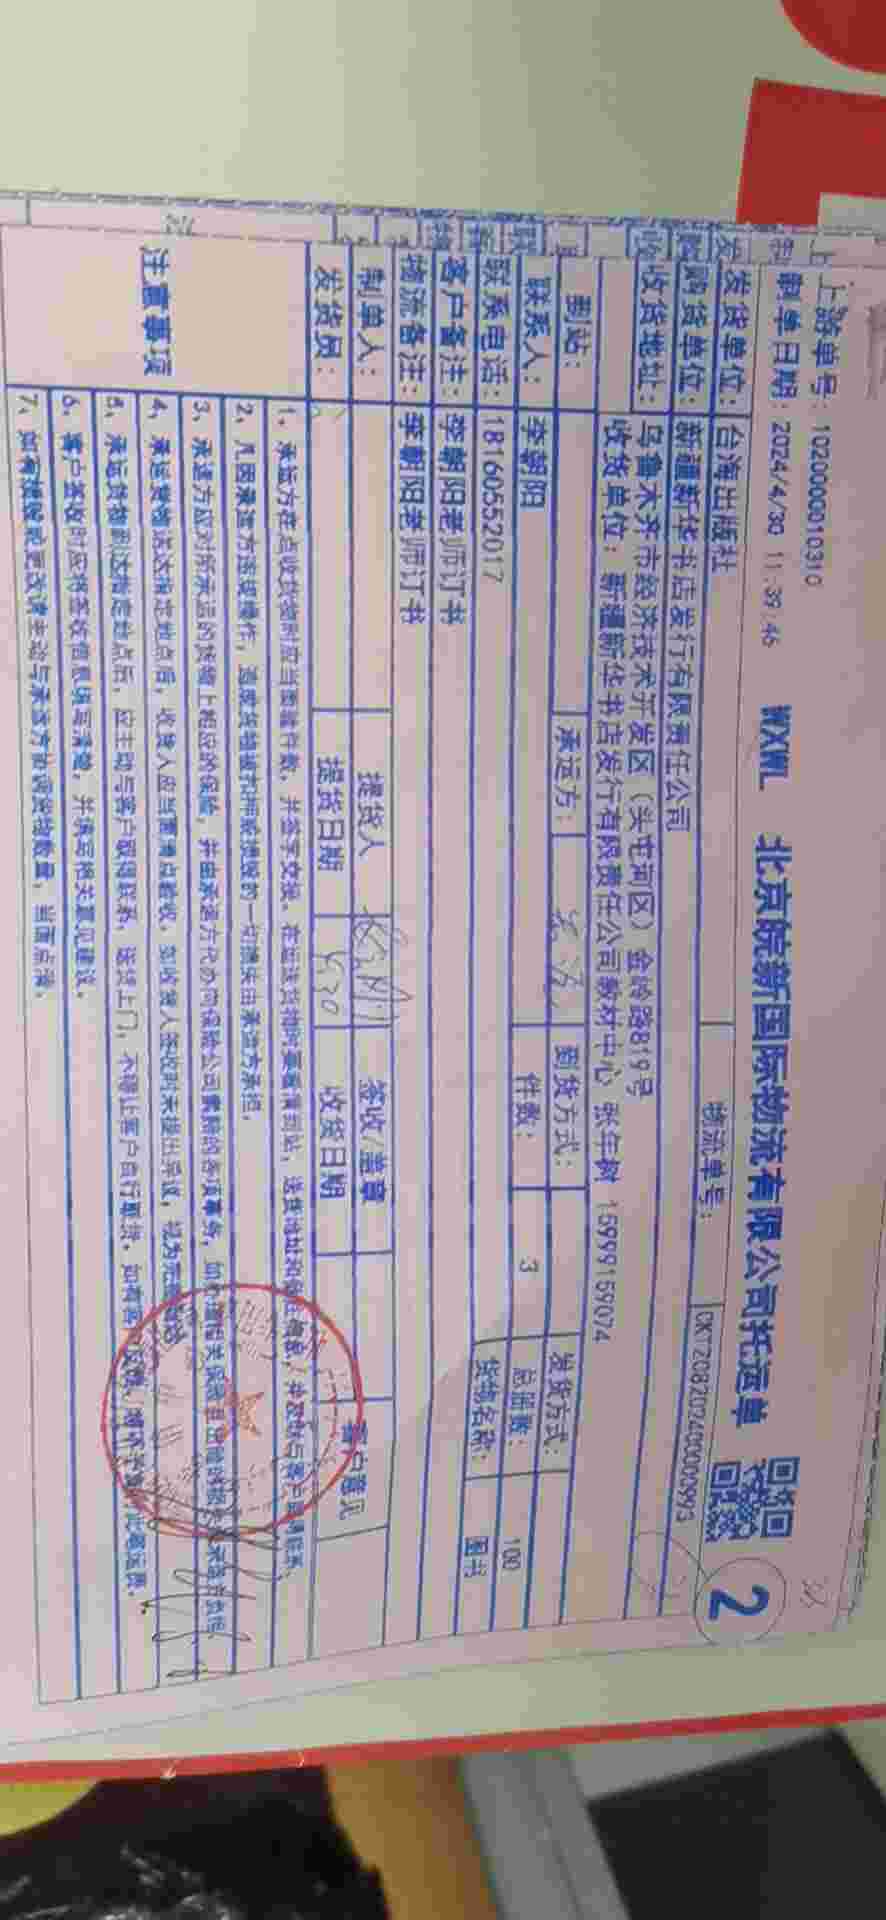 上游单号: 1020000010310
制单日期: 2024/4/30 11:39:45 WXWL 北京皖新国际物流有限公司托运单 2
发货单位: 台海出版社 物流单号: CKTZ0820240000993
购货单位: 新疆新华书店发行有限责任公司
收货地址: 乌鲁木齐市经济技术开发区(头屯河区)金岭路819号
收货单位: 新疆新华书店发行有限责任公司教材中心 张年树 15999159074
到站: 承运方: 到货方式: 发货方式:
联系人: 李朝阳 件数: 3 总册数: 100
联系电话: 18160552017 货物名称: 图书
客户备注: 李朝阳老师订书
物流备注: 李朝阳老师订书
制单人: 提货人 签收/盖章 客户意见
发货员: 提货日期 收货日期
注意事项
1、承运方在点收货物时应当面验件数,并签字交接。
2、凡因承运方违规操作,造成货物破损和延误的一切损失由承运方承担。
3、承运方应对所承运的货物上相应的保险,并由承运方代办向保险公司索赔的各项事务,
4、承运货物送达指定地点后,收货人应当面清点验收,如收货人签收时未提出异议,视为
5、承运货物到达指定地点后,应主动与客户取得联系,送货上门,不得让客户自行取货。
6、客户签收时应将签收信息填写清楚,并填写相关意见建议。
7、